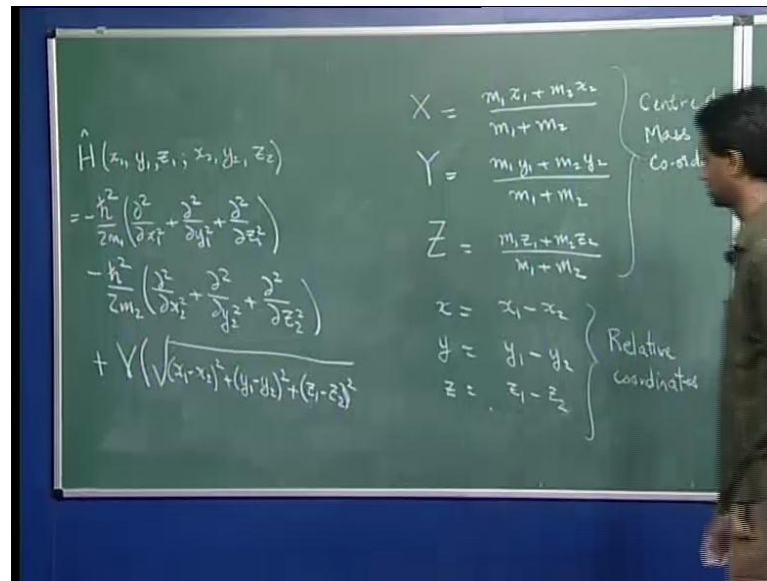 Ĥ(x₁, y₁, z₁; x₂, y₂, z₂)
= -ħ²/2m₁ (∂²/∂x₁² + ∂²/∂y₁² + ∂²/∂z₁²)
-ħ²/2m₂ (∂²/∂x₂² + ∂²/∂y₂² + ∂²/∂z₂²)
+ V(√(x₁-x₂)²+(y₁-y₂)²+(z₁-z₂)²
X = m₁x₁ + m₂x₂ / m₁ + m₂
Y = m₁y₁ + m₂y₂ / m₁ + m₂
Z = m₁z₁ + m₂z₂ / m₁ + m₂
Centre
Mass
Co-ord
x = x₁ - x₂
y = y₁ - y₂
z = z₁ - z₂
Relative
coordinates